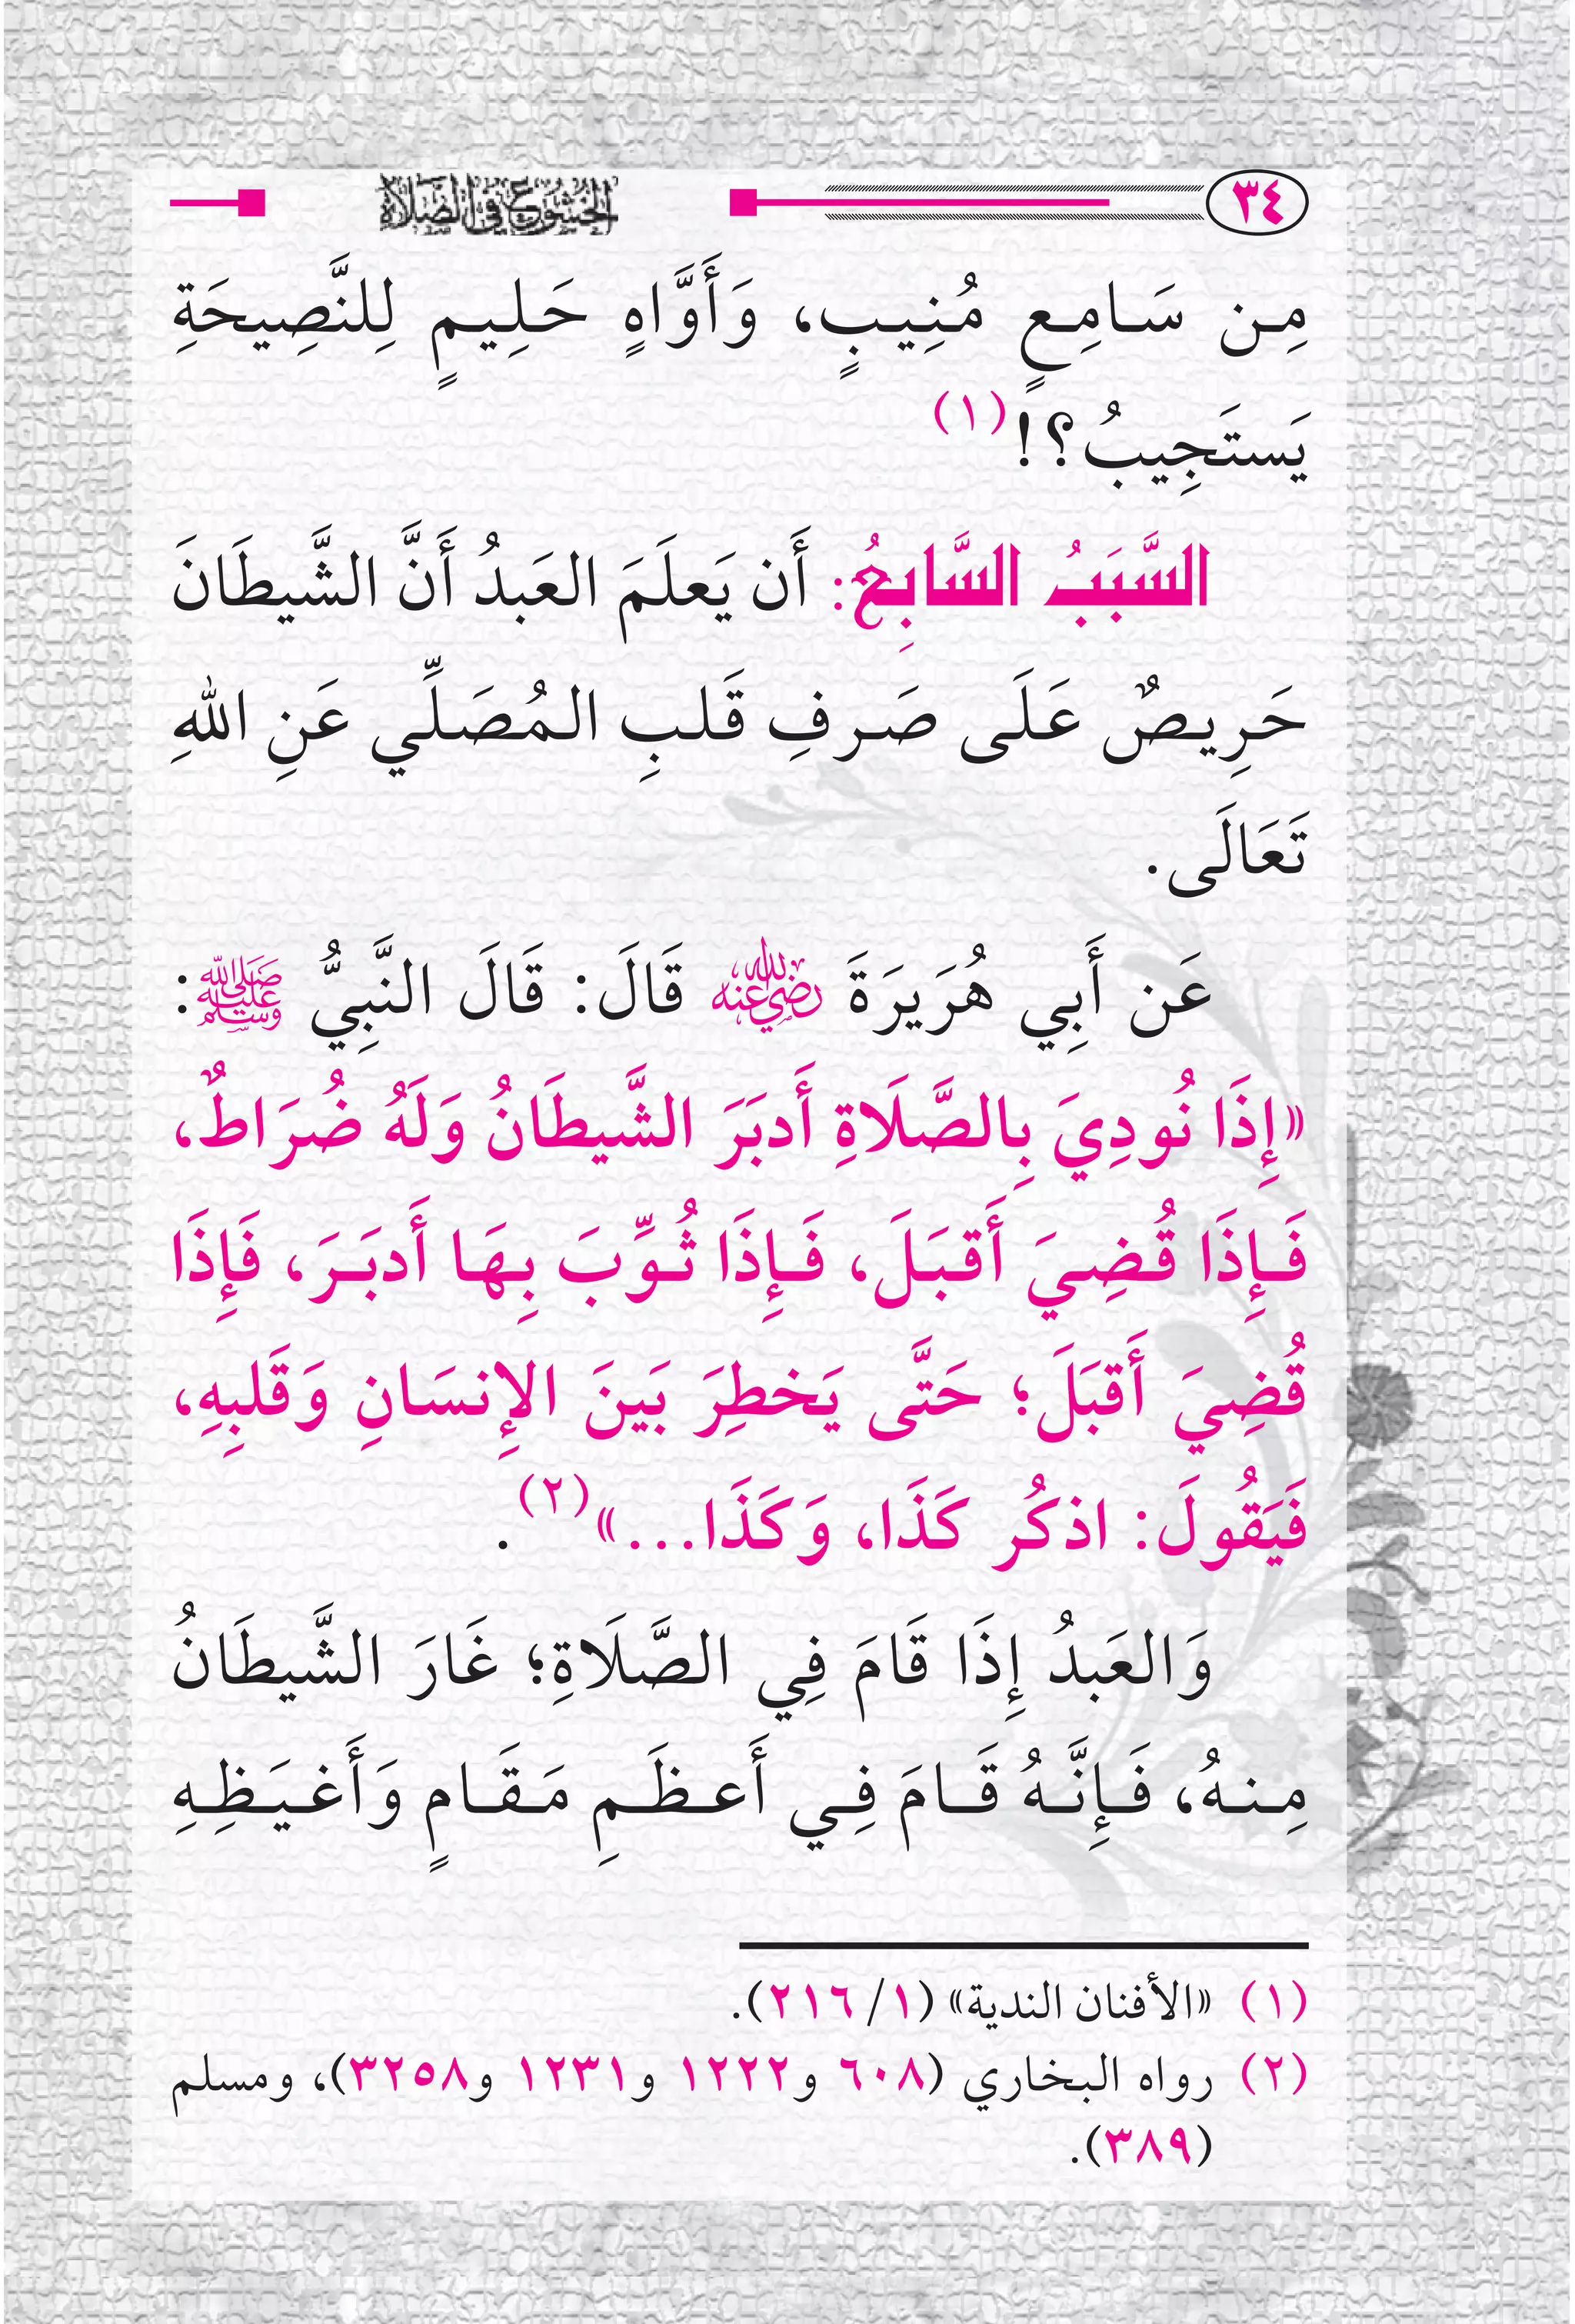 ٣٤ الخشوع في الصلاة
مِن سَامِعٍ مُنِيبٍ، وَأَوَّاهٍ حَلِيمٍ لِلنَّصِيحَةِ
يَستَجِيبُ؟!(١)
السَّبَبُ السَّابِعُ: أَن يَعلَمَ العَبدُ أَنَّ الشَّيطَانَ
حَرِيصٌ عَلَى صَرفِ قَلبِ المُصَلِّي عَنِ اللهِ
تَعَالَى.
عَن أَبِي هُرَيرَةَ رضي الله عنه قَالَ: قَالَ النَّبِيُّ ﷺ:
«إِذَا نُودِيَ بِالصَّلَاةِ أَدبَرَ الشَّيطَانُ وَلَهُ ضُرَاطٌ،
فَإِذَا قُضِيَ أَقبَلَ، فَإِذَا ثُوِّبَ بِهَا أَدبَرَ، فَإِذَا
قُضِيَ أَقبَلَ؛ حَتَّى يَخطِرَ بَينَ الإِنسَانِ وَقَلبِهِ،
فَيَقُولَ: اذكُر كَذَا، وَكَذَا...»(٢).
وَالعَبدُ إِذَا قَامَ فِي الصَّلَاةِ؛ غَارَ الشَّيطَانُ
مِنهُ، فَإِنَّهُ قَامَ فِي أَعظَمِ مَقَامٍ وَأَغيَظِهِ
(١) «الأفنان الندية» (١/ ٢١٦).
(٢) رواه البخاري (٦٠٨ و١٢٢٢ و١٢٣١ و٣٢٥٨)، ومسلم
(٣٨٩).